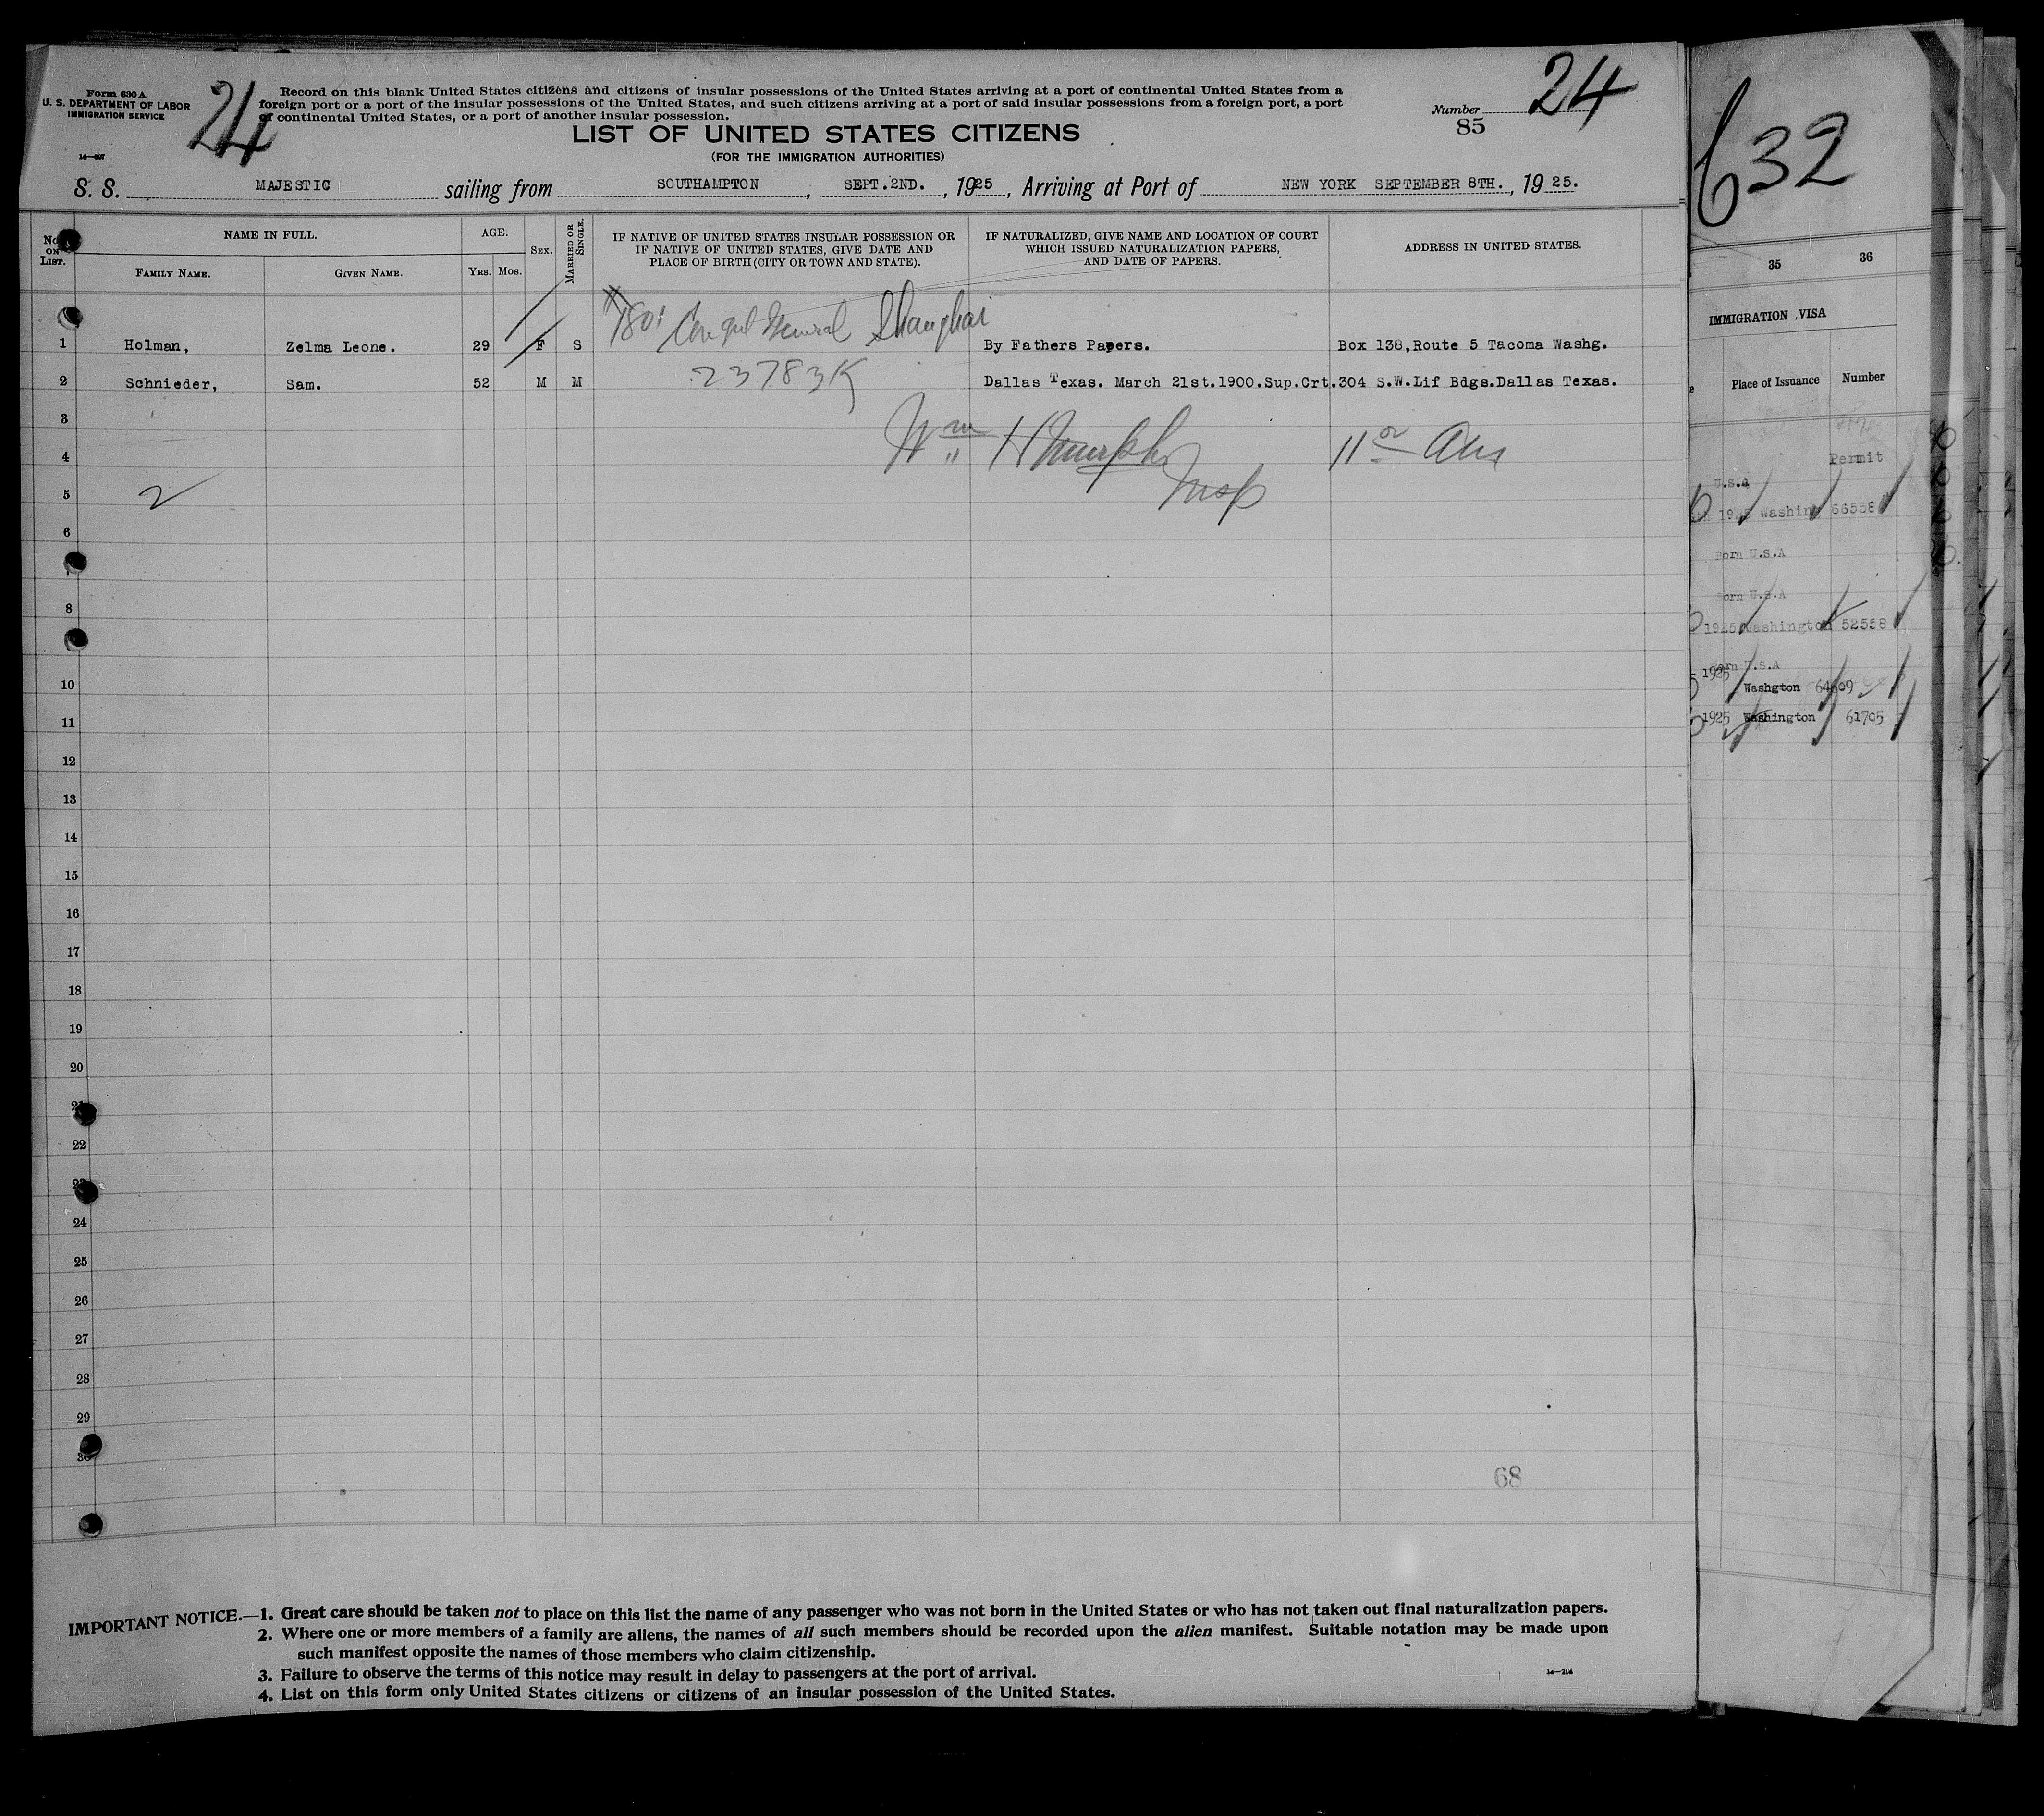 Form 630 A
U. S. DEPARTMENT OF LABOR
IMMIGRATION SERVICE
24
Record on this blank United States citizens and citizens of insular possessions of the United States arriving at a port of continental United States from a
foreign port or a port of the insular possessions of the United States, and such citizens arriving at a port of said insular possessions from a foreign port, a port
of continental United States, or a port of another insular possession.
Number 24
85
LIST OF UNITED STATES CITIZENS
(FOR THE IMMIGRATION AUTHORITIES)
S. S. MAJESTIC sailing from SOUTHAMPTON , SEPT. 2ND. , 1925 , Arriving at Port of NEW YORK SEPTEMBER 8TH. , 1925.
No. ON LIST.
NAME IN FULL.
FAMILY NAME.
GIVEN NAME.
AGE.
YRS. MOS.
SEX.
MARRIED OR SINGLE.
IF NATIVE OF UNITED STATES INSULAR POSSESSION OR
IF NATIVE OF UNITED STATES, GIVE DATE AND
PLACE OF BIRTH (CITY OR TOWN AND STATE).
IF NATURALIZED, GIVE NAME AND LOCATION OF COURT
WHICH ISSUED NATURALIZATION PAPERS,
AND DATE OF PAPERS.
ADDRESS IN UNITED STATES.
Consul General Shanghai
1 Holman, Zelma Leone. 29 F S By Fathers Papers. Box 138,Route 5 Tacoma Washg.
2 Schnieder, Sam. 52 M M 23783K Dallas Texas. March 21st.1900.Sup.Crt. 304 S.W.Lif Bdgs.Dallas Texas.
3
4 Wm H Murphy
Insp
5 2
6
8
10
11
12
13
14
15
16
17
18
19
20
21
22
23
24
25
26
27
28
29
30
68
IMPORTANT NOTICE.—1. Great care should be taken not to place on this list the name of any passenger who was not born in the United States or who has not taken out final naturalization papers.
2. Where one or more members of a family are aliens, the names of all such members should be recorded upon the alien manifest. Suitable notation may be made upon
such manifest opposite the names of those members who claim citizenship.
3. Failure to observe the terms of this notice may result in delay to passengers at the port of arrival.
4. List on this form only United States citizens or citizens of an insular possession of the United States.
14—214
632
35 36
IMMIGRATION VISA
Place of Issuance Number
Permit
U.S.A
1925 Washin 66558
Born U.S.A
Born U.S.A
1925 Washington 52558
Born U.S.A
1925
Washgton 64609
1925 Washington 61705